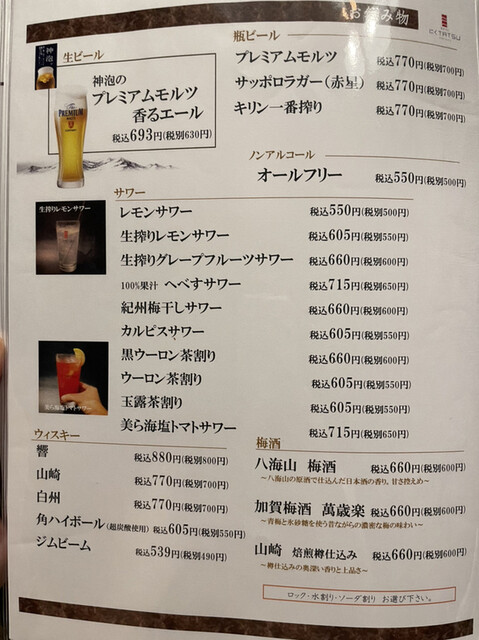 お飲み物
生ビール
神泡の
プレミアムモルツ
香るエール
税込693円(税別630円)
瓶ビール
プレミアムモルツ 税込770円(税別700円)
サッポロラガー(赤星) 税込770円(税別700円)
キリン一番搾り 税込770円(税別700円)
ノンアルコール
オールフリー 税込550円(税別500円)
サワー
生搾りレモンサワー
レモンサワー 税込550円(税別500円)
生搾りレモンサワー 税込605円(税別550円)
生搾りグレープフルーツサワー 税込660円(税別600円)
100%果汁 へべすサワー 税込715円(税別650円)
紀州梅干しサワー 税込660円(税別600円)
カルピスサワー 税込605円(税別550円)
黒ウーロン茶割り 税込660円(税別600円)
ウーロン茶割り 税込605円(税別550円)
玉露茶割り 税込605円(税別550円)
美ら海塩トマトサワー 税込715円(税別650円)
美ら海塩トマトサワー
ウィスキー
響 税込880円(税別800円)
山崎 税込770円(税別700円)
白州 税込770円(税別700円)
角ハイボール(超炭酸使用) 税込605円(税別550円)
ジムビーム 税込539円(税別490円)
梅酒
八海山 梅酒 税込660円(税別600円)
～八海山の原酒で仕込んだ日本酒の香り、甘さ控えめ～
加賀梅酒 萬歳楽 税込660円(税別600円)
～青梅と氷砂糖を使う昔ながらの濃密な梅の味わい～
山崎 焙煎樽仕込み 税込660円(税別600円)
～樽仕込みの奥深い香りと上品さ～
ロック・水割り・ソーダ割り お選び下さい。